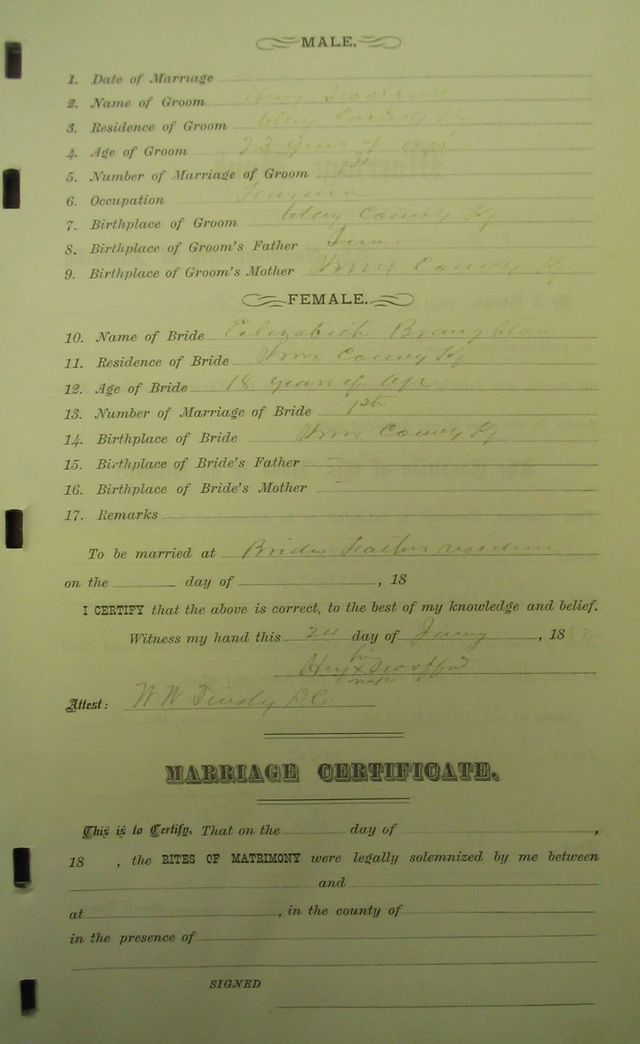 MALE.
1. Date of Marriage
2. Name of Groom
3. Residence of Groom Clay County Ky
4. Age of Groom 23 years of age
5. Number of Marriage of Groom 1st
6. Occupation Farmer
7. Birthplace of Groom Clay County Ky
8. Birthplace of Groom's Father
9. Birthplace of Groom's Mother Knox County Ky
FEMALE.
10. Name of Bride Elizabeth
11. Residence of Bride Knox County Ky
12. Age of Bride 18 years of age
13. Number of Marriage of Bride 1st
14. Birthplace of Bride Knox County Ky
15. Birthplace of Bride's Father
16. Birthplace of Bride's Mother
17. Remarks
To be married at Brides Fathers residence
on the day of , 18
I CERTIFY that the above is correct, to the best of my knowledge and belief.
Witness my hand this 24 day of , 18
his
x
mark
Attest: W W DC
MARRIAGE CERTIFICATE.
This is to Certify, That on the day of ,
18 , the RITES OF MATRIMONY were legally solemnized by me between
and
at , in the county of
in the presence of
SIGNED